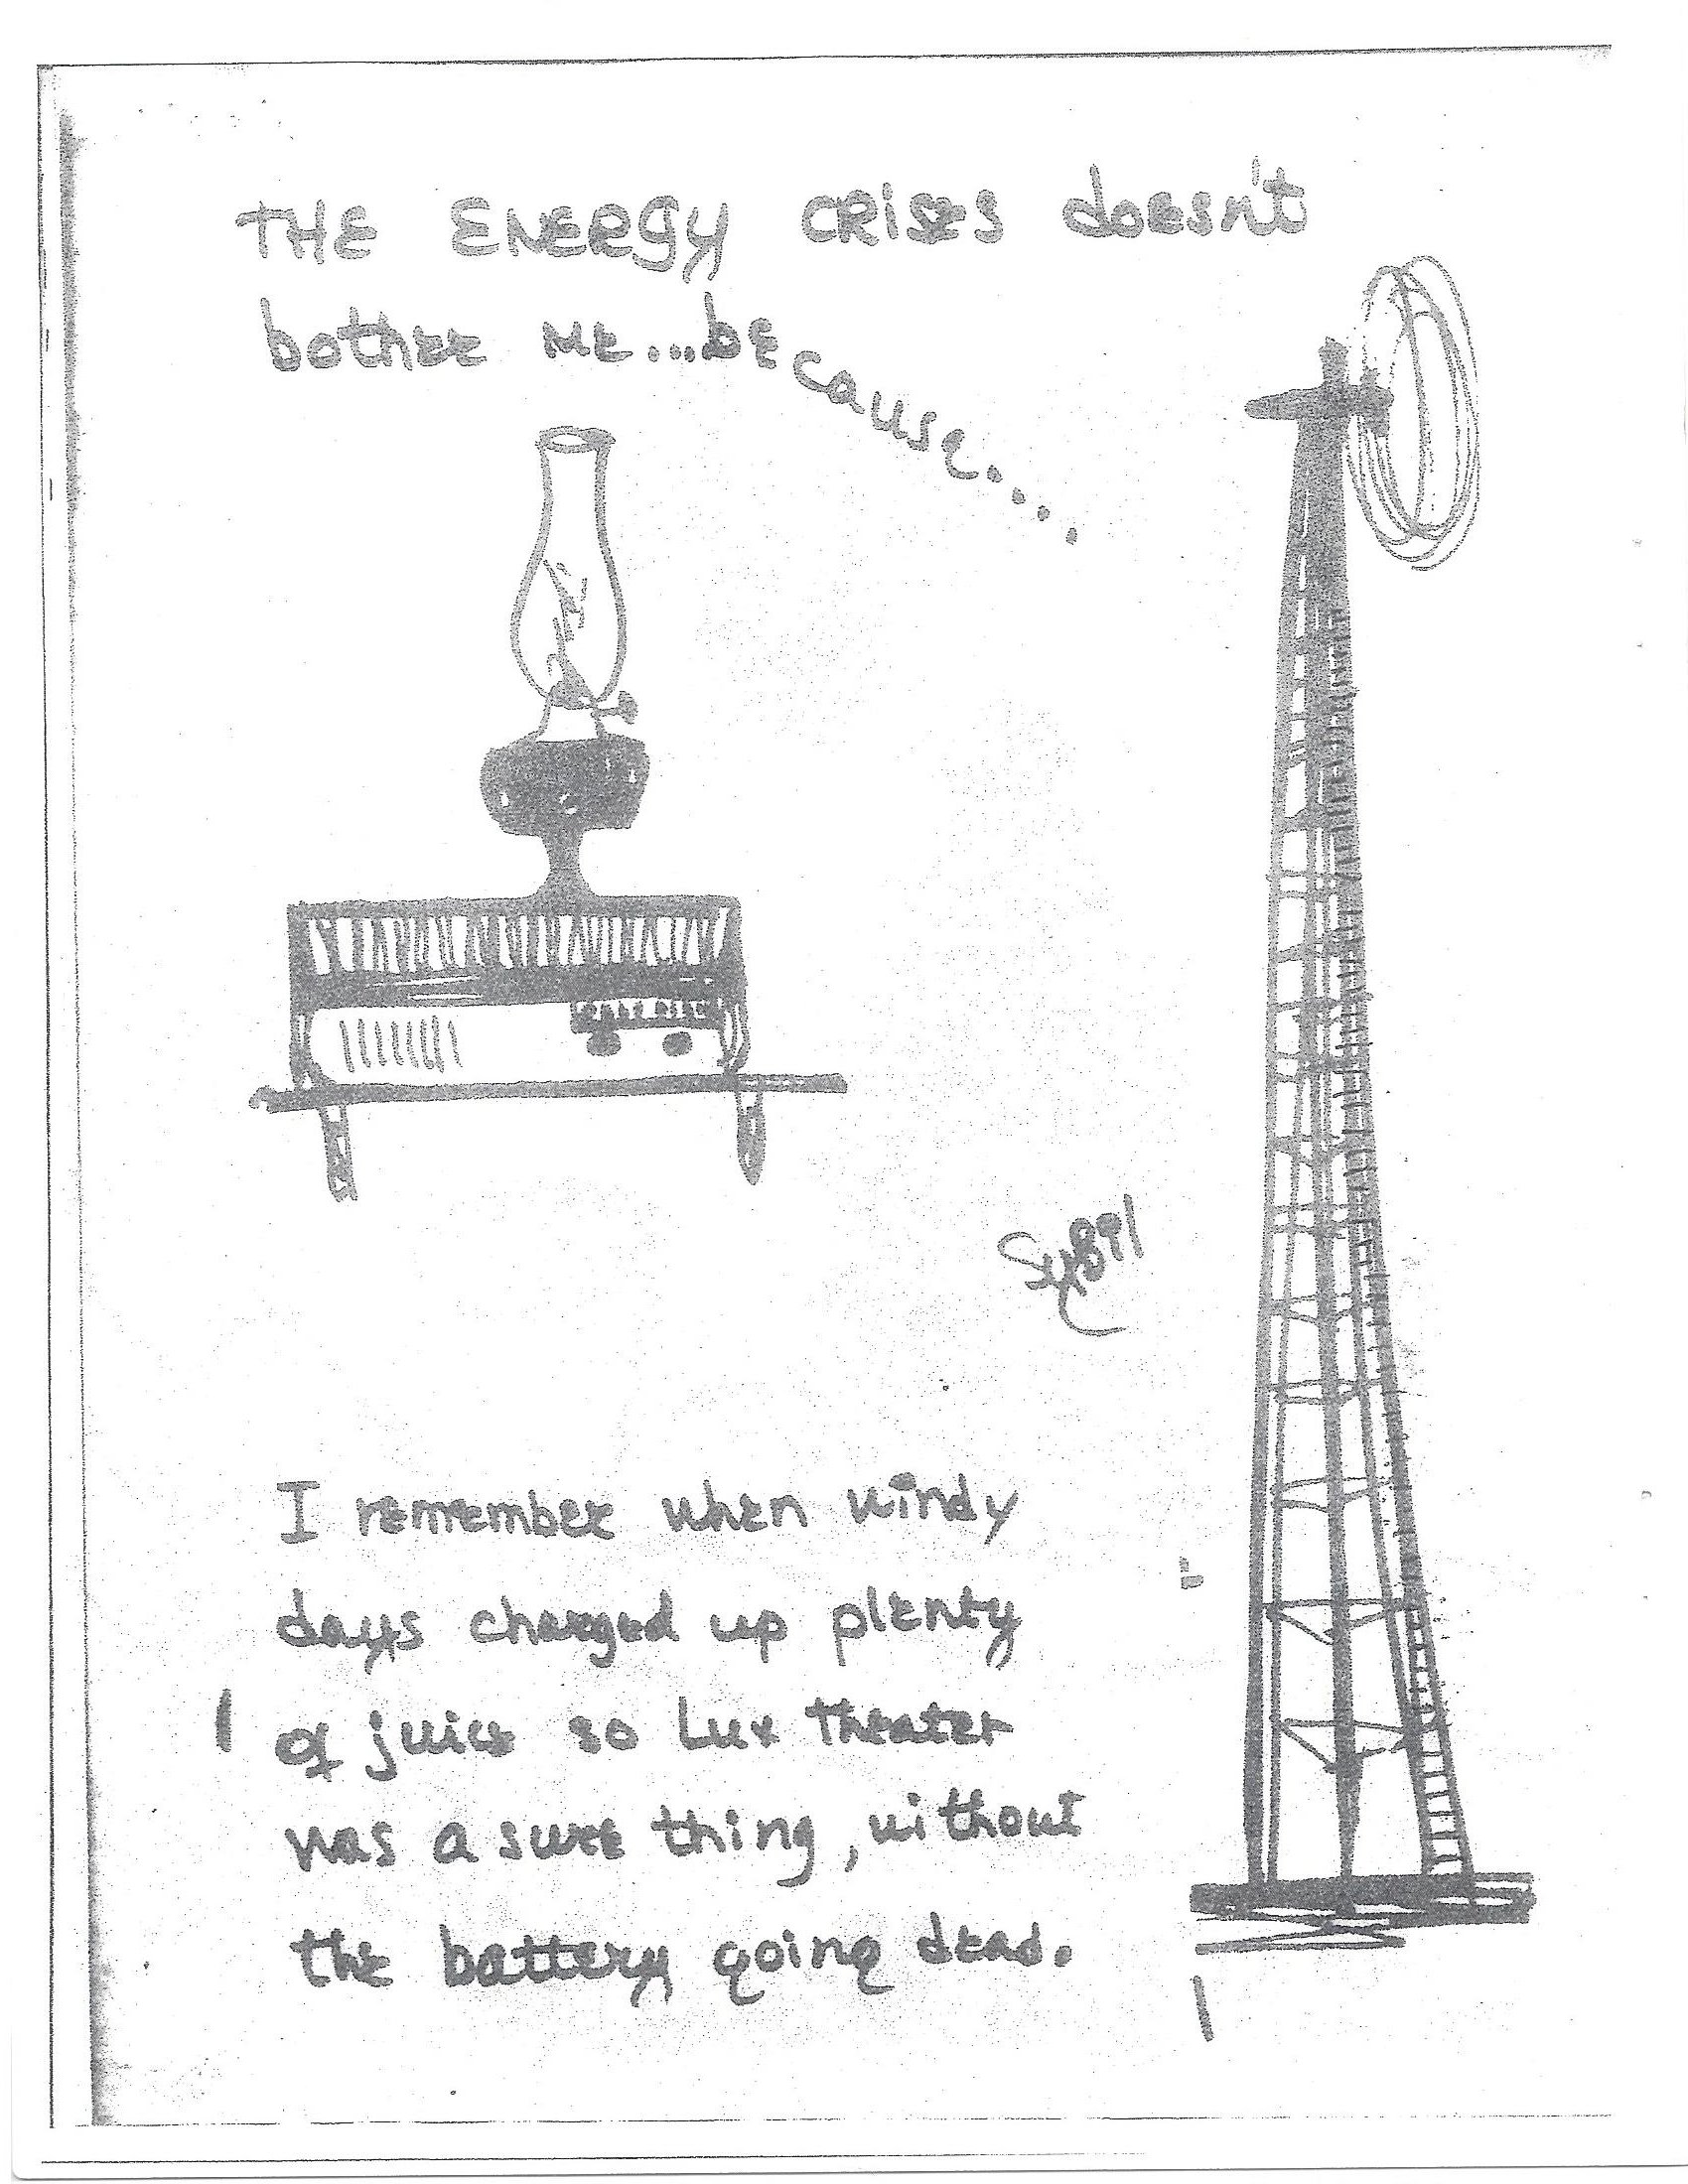 THE ENERGY CRISES doesn't
bother ME....because....
Sybil
I remember when windy
days charged up plenty
of juice so Lux Theater
was a sure thing, without
the battery going dead.